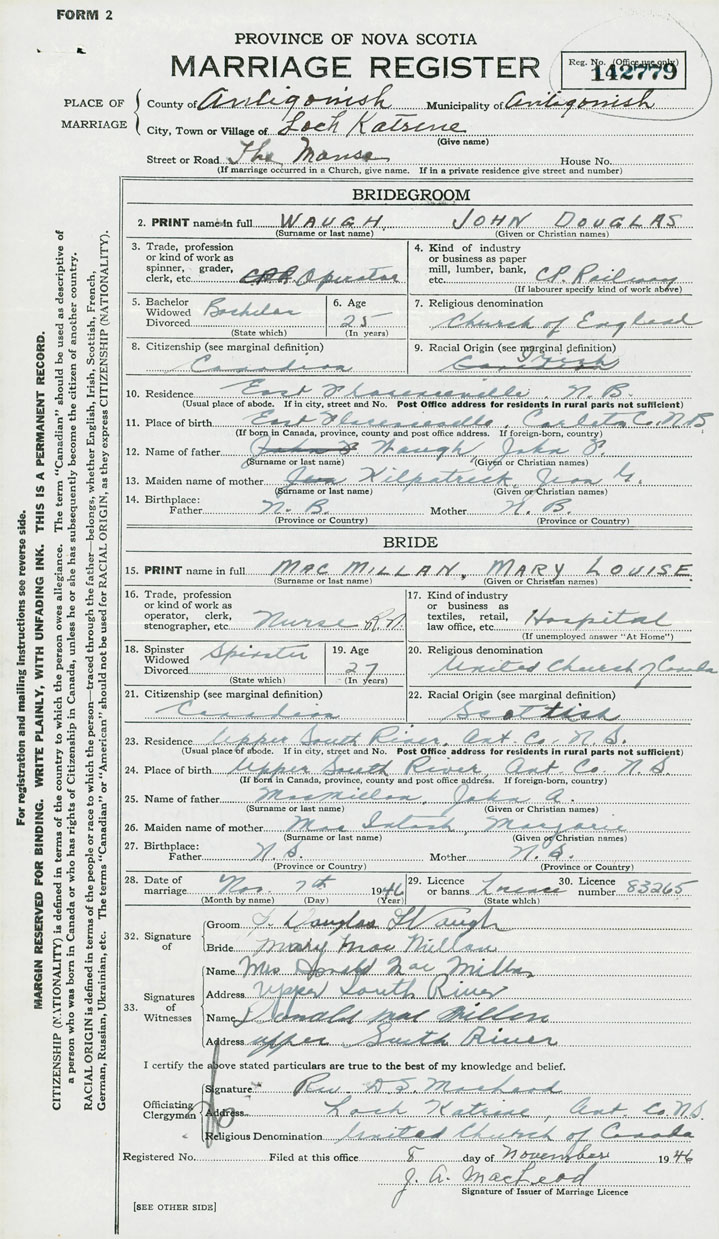 FORM 2
PROVINCE OF NOVA SCOTIA
MARRIAGE REGISTER
Reg. No. (Office use only)
142779
PLACE OF MARRIAGE
County of Antigonish Municipality of Antigonish
City, Town or Village of Loch Katrine
(Give name)
Street or Road The Manse House No.
(If marriage occurred in a Church, give name. If in a private residence give street and number)
BRIDEGROOM
2. PRINT name in full WAUGH, JOHN DOUGLAS
(Surname or last name) (Given or Christian names)
3. Trade, profession or kind of work as spinner, grader, clerk, etc. CPR Operator
4. Kind of industry or business as paper mill, lumber, bank, etc. C.P. Railway
(If labourer specify kind of work above)
5. Bachelor Widowed Divorced Bachelor
(State which)
6. Age 25
(In years)
7. Religious denomination
Church of England
8. Citizenship (see marginal definition)
Canadian
9. Racial Origin (see marginal definition)
Irish
10. Residence East Florenceville, N.B.
(Usual place of abode. If in city, street and No. Post Office address for residents in rural parts not sufficient)
11. Place of birth East Florenceville, Carleton Co. N.B.
(If born in Canada, province, county and post office address. If foreign-born, country)
12. Name of father Waugh John
(Surname or last name) (Given or Christian names)
13. Maiden name of mother Kilpatrick, Jean
(Surname or last name) (Given or Christian names)
14. Birthplace:
Father N.B. Mother N.B.
(Province or Country) (Province or Country)
BRIDE
15. PRINT name in full MAC MILLAN, MARY LOUISE
(Surname or last name) (Given or Christian names)
16. Trade, profession or kind of work as operator, clerk, stenographer, etc. Nurse R.N.
17. Kind of industry or business as textiles, retail, law office, etc. Hospital
(If unemployed answer "At Home")
18. Spinster Widowed Divorced Spinster
(State which)
19. Age 27
(In years)
20. Religious denomination
United Church of Canada
21. Citizenship (see marginal definition)
Canadian
22. Racial Origin (see marginal definition)
Scottish
23. Residence Upper South River, Ant. Co. N.S.
(Usual place of abode. If in city, street and No. Post Office address for residents in rural parts not sufficient)
24. Place of birth Upper South River, Ant. Co. N.S.
(If born in Canada, province, county and post office address. If foreign-born, country)
25. Name of father MacMillan, John A.
(Surname or last name) (Given or Christian names)
26. Maiden name of mother MacIntosh, Marjorie
(Surname or last name) (Given or Christian names)
27. Birthplace:
Father N.S. Mother N.S.
(Province or Country) (Province or Country)
28. Date of marriage Nov. 7th 1946
(Month by name) (Day) (Year)
29. Licence or banns Licence
(State which)
30. Licence number 83265
32. Signature of
Groom J. Douglas Waugh
Bride Mary MacMillan
33. Signatures of Witnesses
Name Mrs Donald MacMillan
Address Upper South River
Name Donald MacMillan
Address Upper South River
I certify the above stated particulars are true to the best of my knowledge and belief.
Officiating Clergyman
Signature Rev. D.S. MacLeod
Address Loch Katrine, Ant. Co. N.S.
Religious Denomination United Church of Canada
Registered No. Filed at this office 8 day of November 1946
J. A. MacLeod
Signature of Issuer of Marriage Licence
[SEE OTHER SIDE]
For registration and mailing instructions see reverse side.
MARGIN RESERVED FOR BINDING. WRITE PLAINLY, WITH UNFADING INK. THIS IS A PERMANENT RECORD.
CITIZENSHIP (NATIONALITY) is defined in terms of the country to which the person owes allegiance. The term "Canadian" should be used as descriptive of
a person who was born in Canada or who has rights of Citizenship in Canada, unless he or she has subsequently become the citizen of another country.
RACIAL ORIGIN is defined in terms of the people or race to which the person—traced through the father—belongs, whether English, Irish, Scottish, French,
German, Russian, Ukrainian, etc. The terms "Canadian" or "American" should not be used for RACIAL ORIGIN, as they express CITIZENSHIP (NATIONALITY).